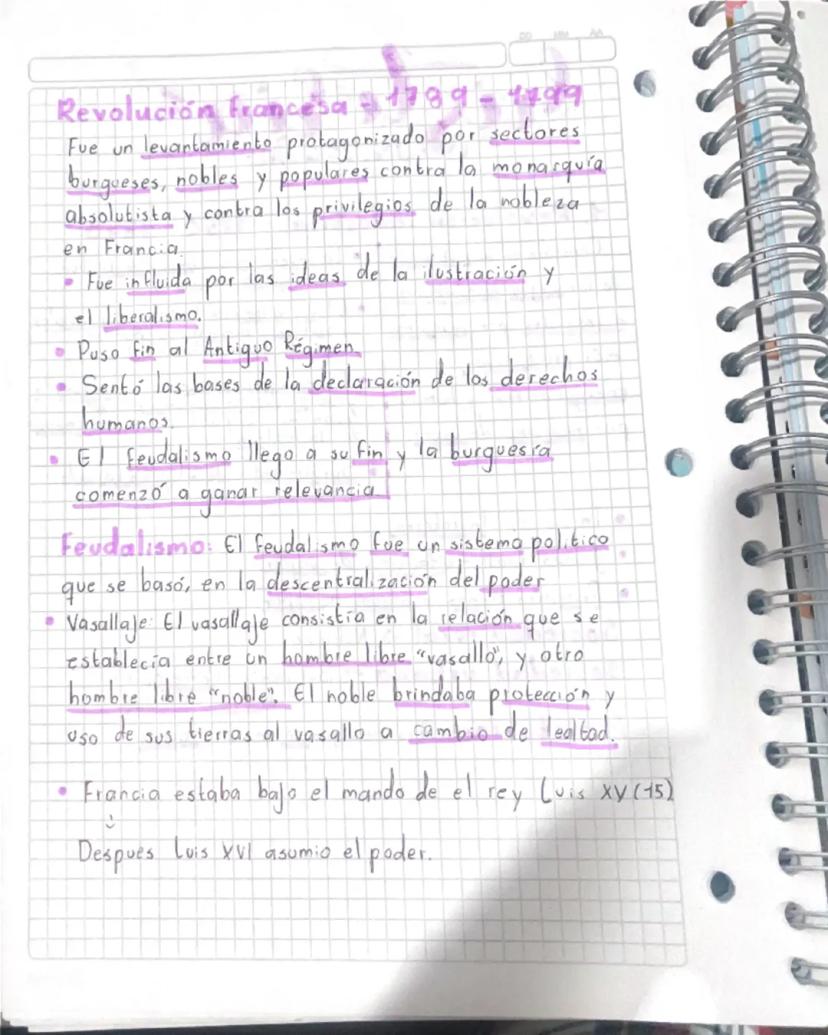 DD MM AA
Revolución Francesa - 1789 - 1799
Fue un levantamiento protagonizado por sectores
burgueses, nobles y populares contra la monarquía
absolutista y contra los privilegios de la nobleza
en Francia.
• Fue influida por las ideas de la ilustración y
el liberalismo.
• Puso fin al Antiguo Régimen
• Sentó las bases de la declaración de los derechos
humanos.
• El feudalismo llego a su fin y la burguesía
comenzó a ganar relevancia
Feudalismo: El feudalismo fue un sistema politico
que se basó, en la descentralización del poder
• Vasallaje: El vasallaje consistía en la relación que se
establecía entre un hombre libre "vasallo", y otro
hombre libre "noble". El noble brindaba protección y
uso de sus tierras al vasallo a cambio de lealtad.
• Francia estaba bajo el mando de el rey Luis XV (15)
Despues Luis XVI asumio el poder.